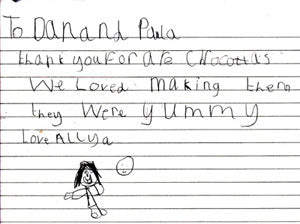 To Dan and Paula
thank you For are CHocottas
We Loved making them
they Were yummy
Love Allya